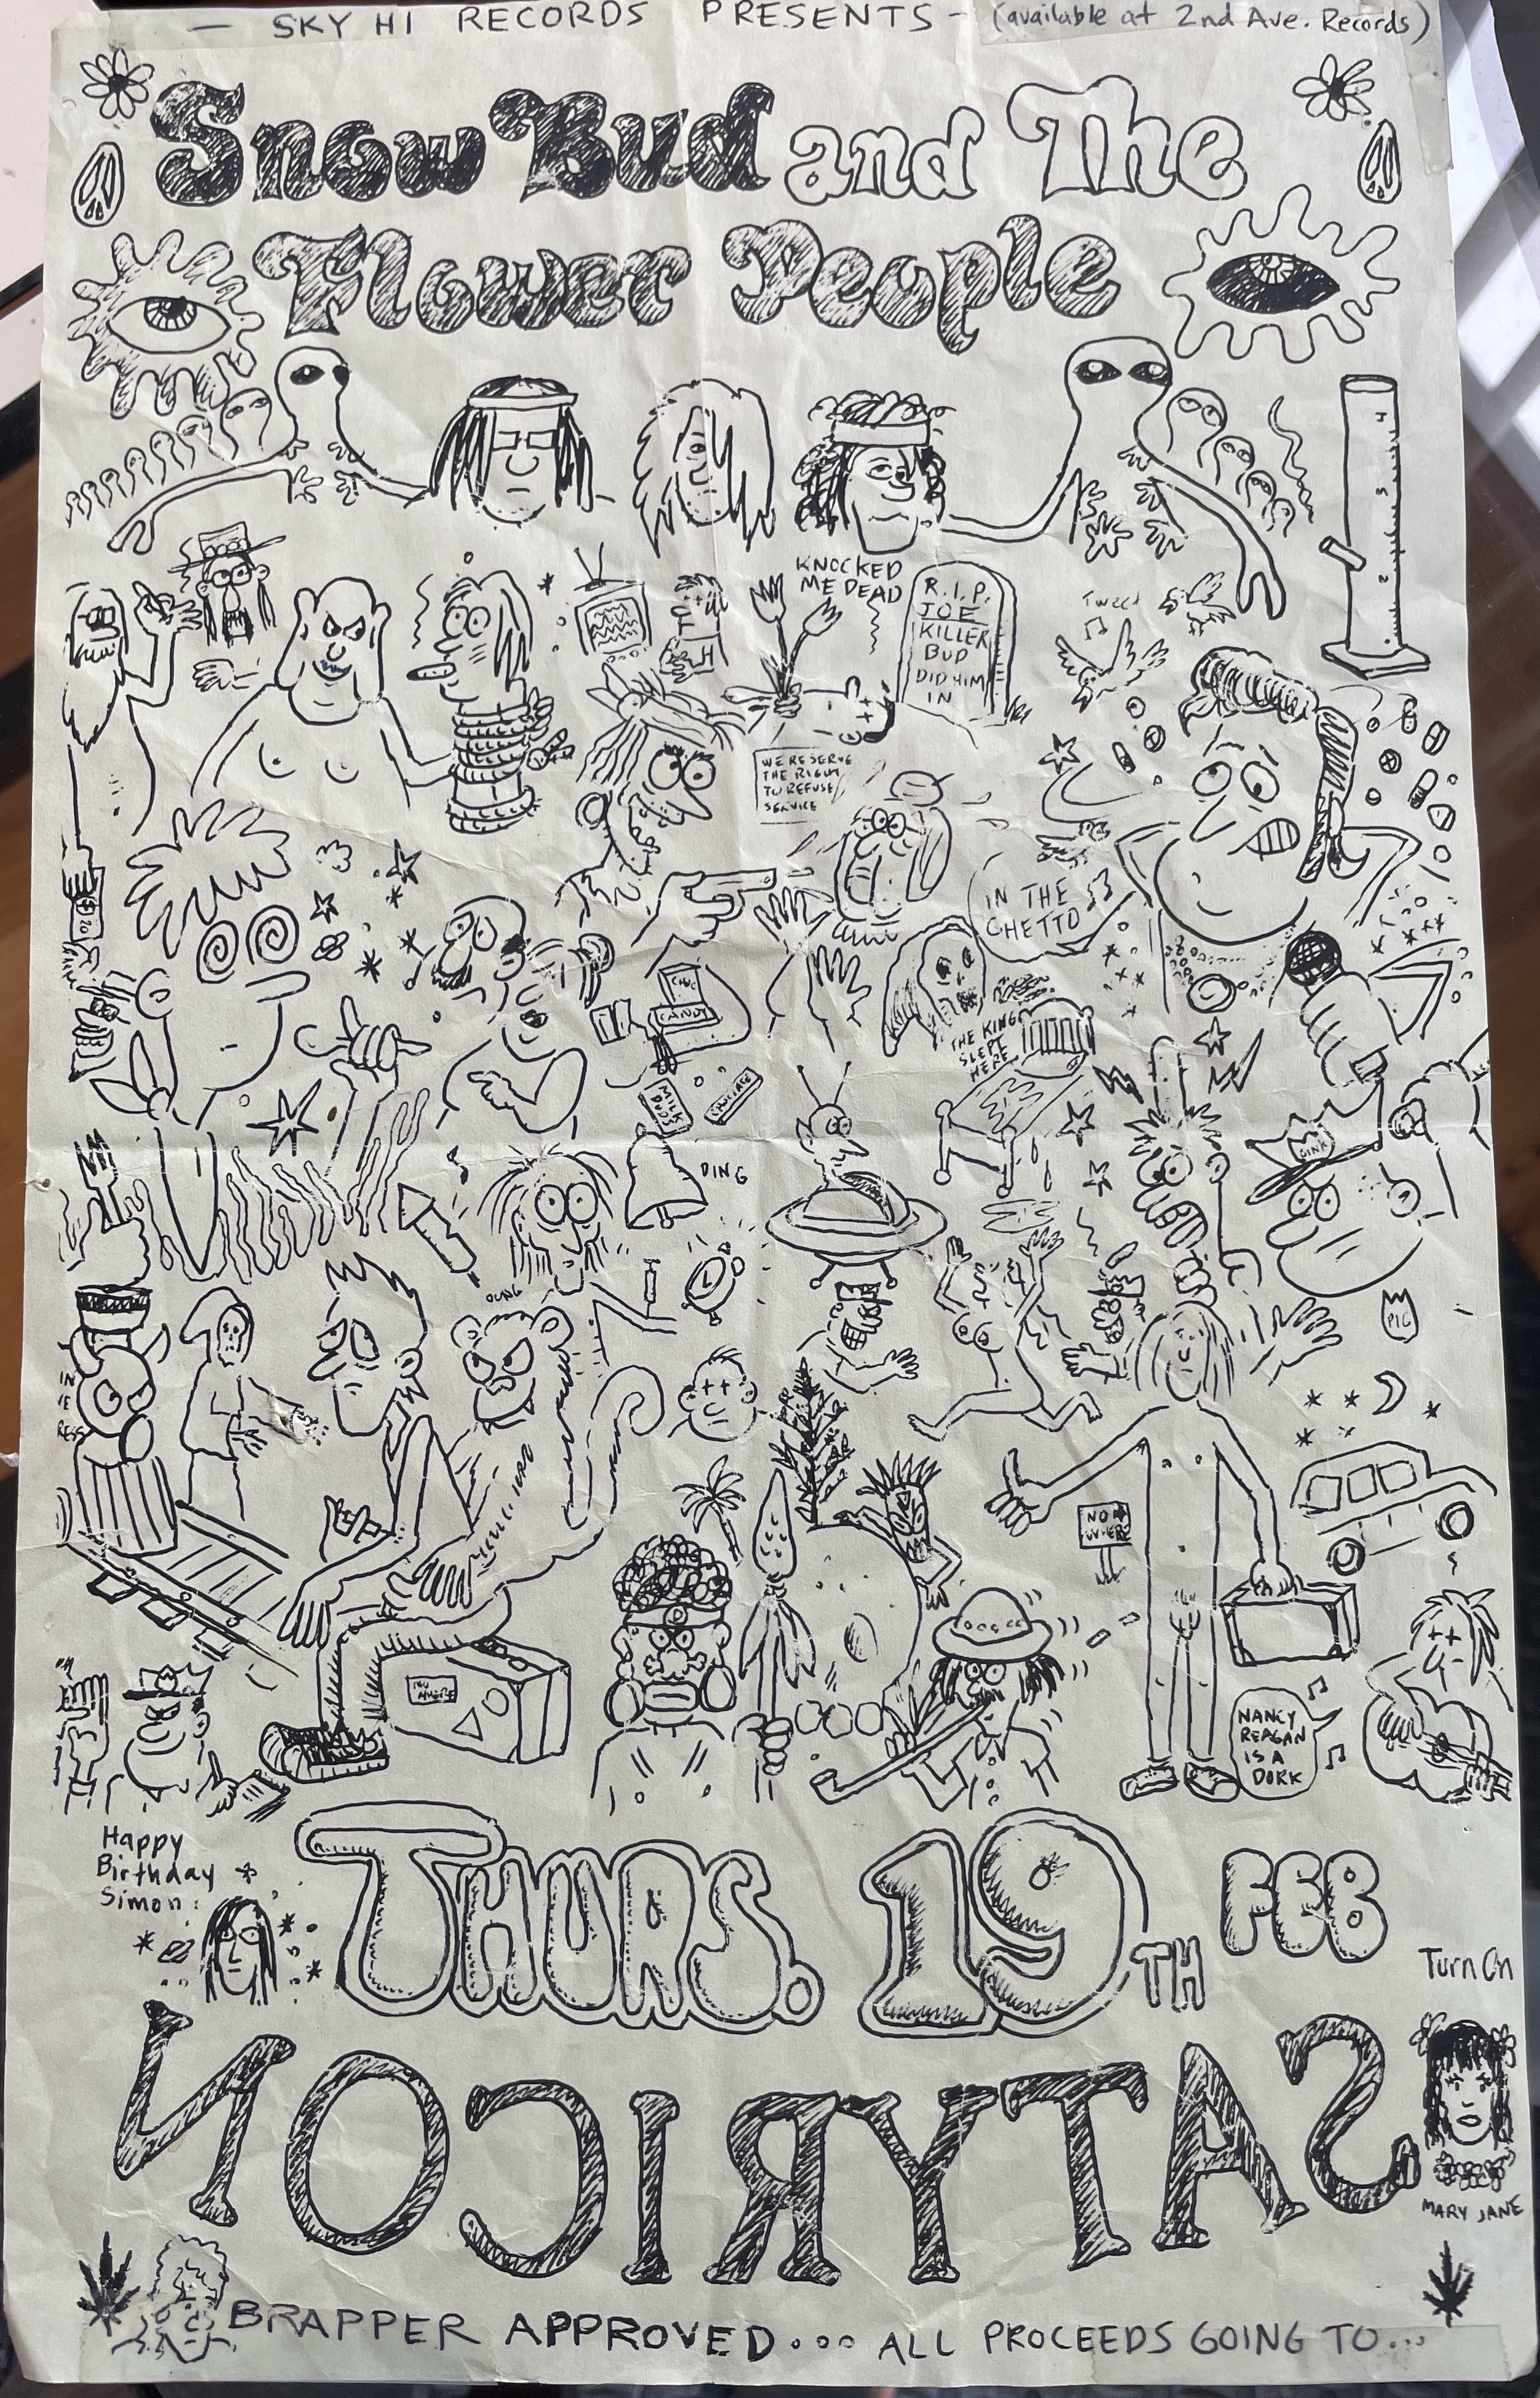 — SKY HI RECORDS PRESENTS – (available at 2nd Ave. Records)
Snow Bud and The
Flower People
KNOCKED
ME DEAD
R.I.P.
JOE
KILLER
BUD
DID HIM
IN
Tweet
H
WE RESERVE
THE RIGHT
TO REFUSE
SERVICE
IN THE
GHETTO
CANDY
THE KING
SLEPT
HERE
MILK
DUDS
OINK
DING
PIG
NO
NANCY
REAGAN
IS A
DORK
Happy
Birthday
Simon
THURS. 19TH FEB
Turn On
SATYRICON
MARY JANE
BRAPPER APPROVED... ALL PROCEEDS GOING TO...